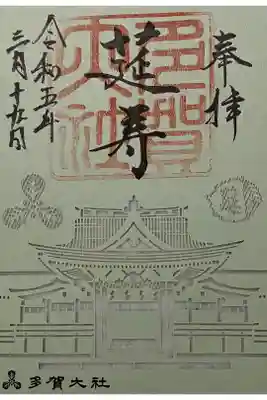 奉拝
莚寿
多賀大社
令和五年
三月十
莚
多賀大社